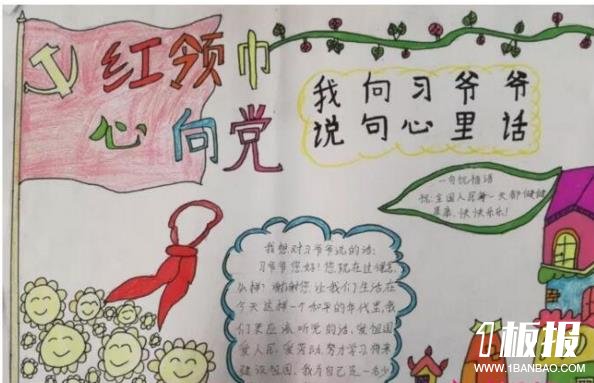 红领巾
心向党
我向习爷爷
说句心里话
一句祝福语
祝:全国人民每一天都健健
康康、快快乐乐!
我想对习爷爷说的话:
习爷爷您好!您现在过得怎
么样?谢谢您让我们生活在
今天这样一个和平的年代里,我
们要应该听党的话,爱祖国
爱人民,爱劳动,努力学习将来
建设祖国,我为自己是一名少
板报
WWW.1BANBAO.COM